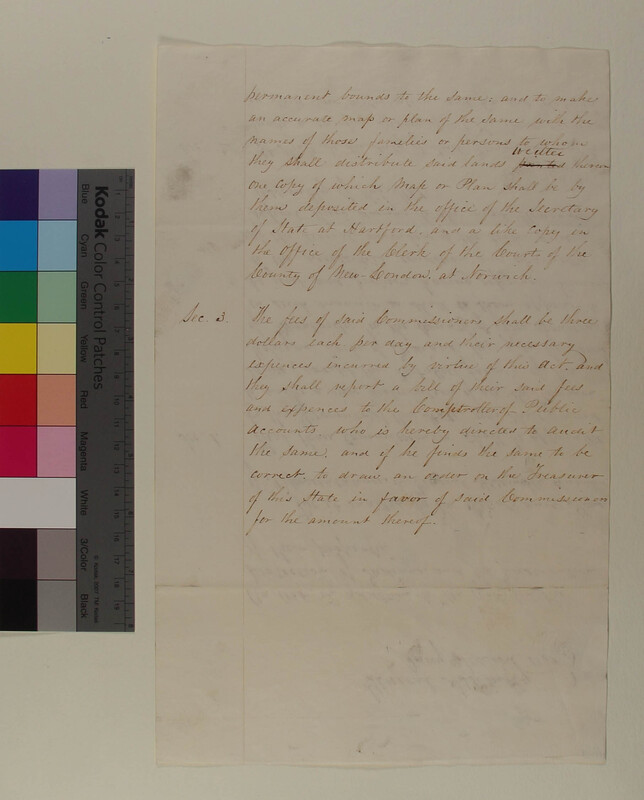 permanent bounds to the same; and to make
an accurate map or plan of the same with the
names of those families or persons to whom
they shall distribute said lands therein
one copy of which Map or Plan shall be by
them deposited in the office of the Secretary
of State at Hartford, and a like copy, in
the Office of the Clerk of the Court of the
County of New-London, at Norwich.
Sec. 3. The fees of said Commissioners shall be three
dollars each per day and their necessary
expences incurred by virtue of this Act, and
they shall report a bill of their said fees
and expences to the Comptroller of Public
accounts, who is hereby directed to audit
the same, and if he finds the same to be
correct, to draw an order on the Treasurer
of this State in favor of said Commissioners
for the amount thereof.
Kodak Color Control Patches
Blue
Cyan
Green
Yellow
Red
Magenta
White
3/Color
Black